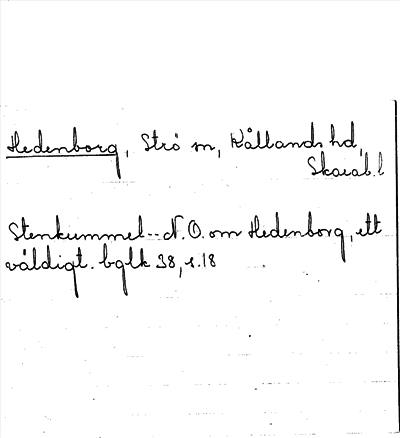 Hedenborg, Strö sn, Kållands hd,
Skarab. l
Stenkummel -- N.O. om Hedenborg, ett
väldigt. bglk 38, s. 18